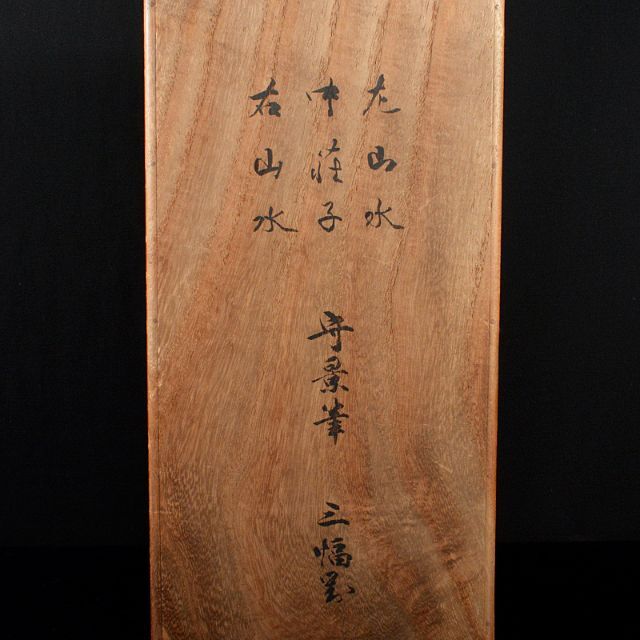 左山水
中荘子 守景筆 三幅対
右山水